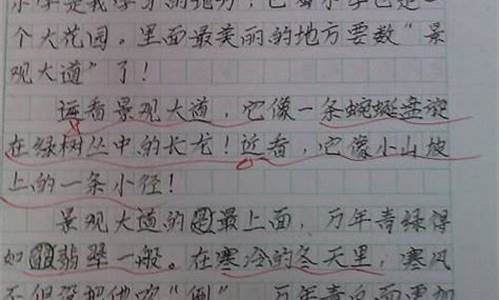 小学是我学习的地方，它
个大花园。里面最美丽的地方要数“景
观大道”了！
远看景观大道，它像一条蜿蜒盘旋
在绿树丛中的长龙！近看，它像小山坡
上的一条小径！
景观大道的最上面，万年青绿得
如翡翠一般。在寒冷的冬天里，寒风
不但没把他吹“倒”，万年青反而更加